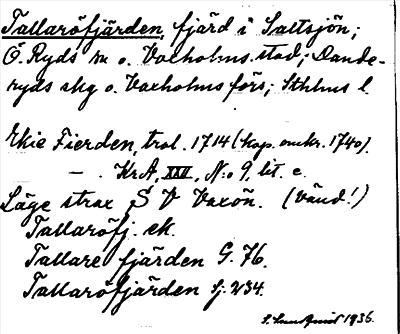 Tallaröfjärden, fjärd i Saltsjön;
Ö. Ryds sn o. Vaxholms stad; Dande-
ryds skg o. Vaxholms förs; Sthlms l.
Ekie Fierden, trol. 1714 (kop. omkr. 1740).
— KrA, XXV, N:o 9, lit. c.
Läge strax S V Vaxön. (Vänd!)
Tallaröfj. ek.
Tallare fjärden G. 76.
Tallaröfjärden Sj. 234.
1936.